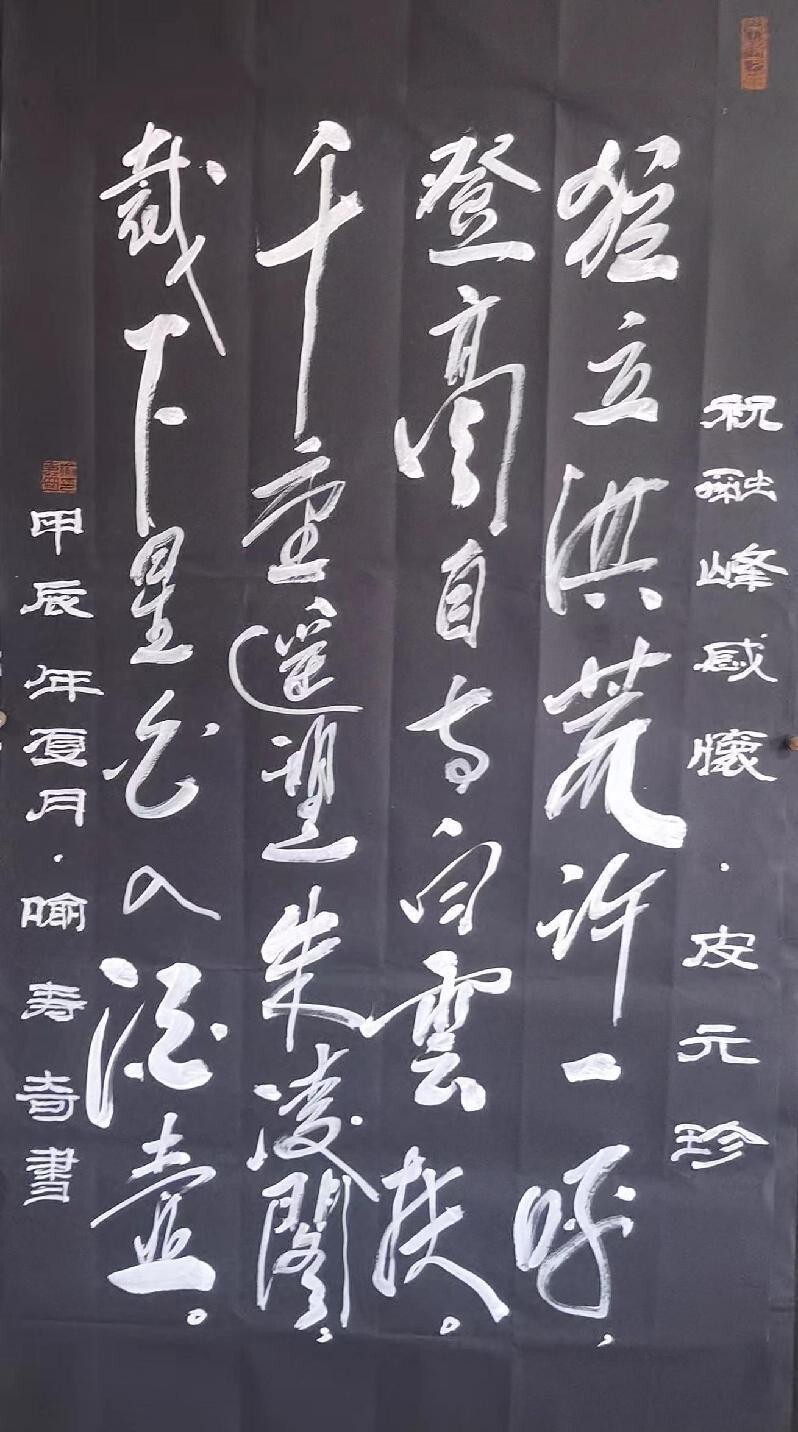 祝融峰感懷·皮元珍
独立洪荒許一呼，
登高自有白雲扶。
千重遥望朱凌閣，
裁下星光入酒壶。
甲辰年夏月·喻寿奇書